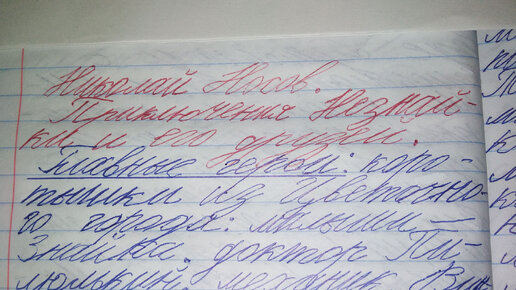 Николай Носов.
Приключения Незнай-
ки и его друзей.
Главные герои: коро-
тышки из Цветочно-
го города: малыши —
Знайка, доктор Пи-
люлькин, механик Вин-